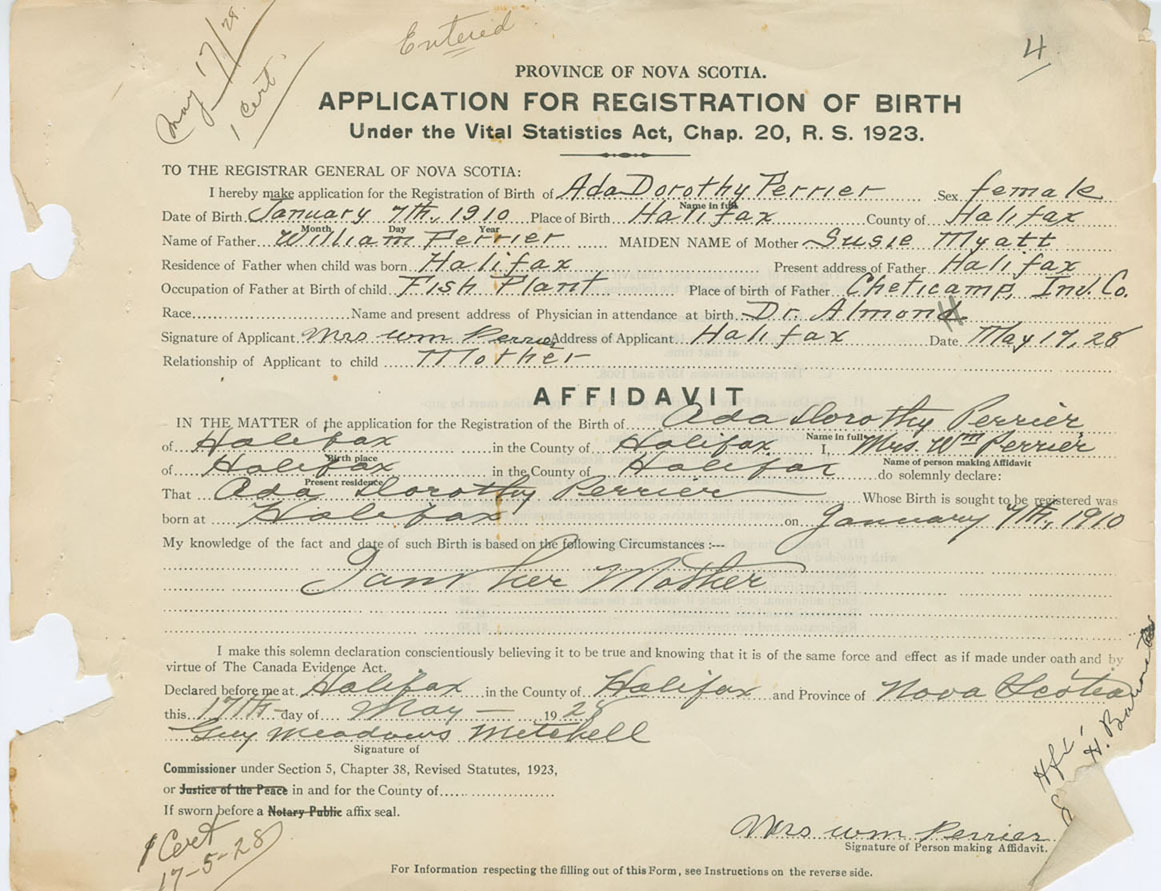 May 17/28
1 Cert
Entered
4
PROVINCE OF NOVA SCOTIA.
APPLICATION FOR REGISTRATION OF BIRTH
Under the Vital Statistics Act, Chap. 20, R. S. 1923.
TO THE REGISTRAR GENERAL OF NOVA SCOTIA:
I hereby make application for the Registration of Birth of Ada Dorothy Perrier Sex female
Name in full
Date of Birth January 7th, 1910 Place of Birth Halifax County of Halifax
Month Day Year
Name of Father William Perrier MAIDEN NAME of Mother Susie Myatt
Residence of Father when child was born Halifax Present address of Father Halifax
Occupation of Father at Birth of child Fish Plant Place of birth of Father Cheticamp, Inv. Co.
Race Name and present address of Physician in attendance at birth Dr. Almond
Signature of Applicant Mrs wm Perrier Address of Applicant Halifax Date May 17, 28
Relationship of Applicant to child Mother
AFFIDAVIT
IN THE MATTER of the application for the Registration of the Birth of Ada Dorothy Perrier
Name in full
of Halifax in the County of Halifax. I, Mrs. Wm Perrier
Birth place Name of person making Affidavit
of Halifax in the County of Halifax do solemnly declare:
Present residence
That Ada Dorothy Perrier Whose Birth is sought to be registered was
born at Halifax on January 7th, 1910
My knowledge of the fact and date of such Birth is based on the following Circumstances :---
I am her Mother
I make this solemn declaration conscientiously believing it to be true and knowing that it is of the same force and effect as if made under oath and by
virtue of The Canada Evidence Act.
Declared before me at Halifax in the County of Halifax and Province of Nova Scotia
this 17th day of May 1928
Guy Meadows Mitchell
Signature of
Commissioner under Section 5, Chapter 38, Revised Statutes, 1923,
or Justice of the Peace in and for the County of
If sworn before a Notary Public affix seal.
1 Cert
17-5-28
Hfx
Mrs wm Perrier
Signature of Person making Affidavit.
For Information respecting the filling out of this Form, see Instructions on the reverse side.